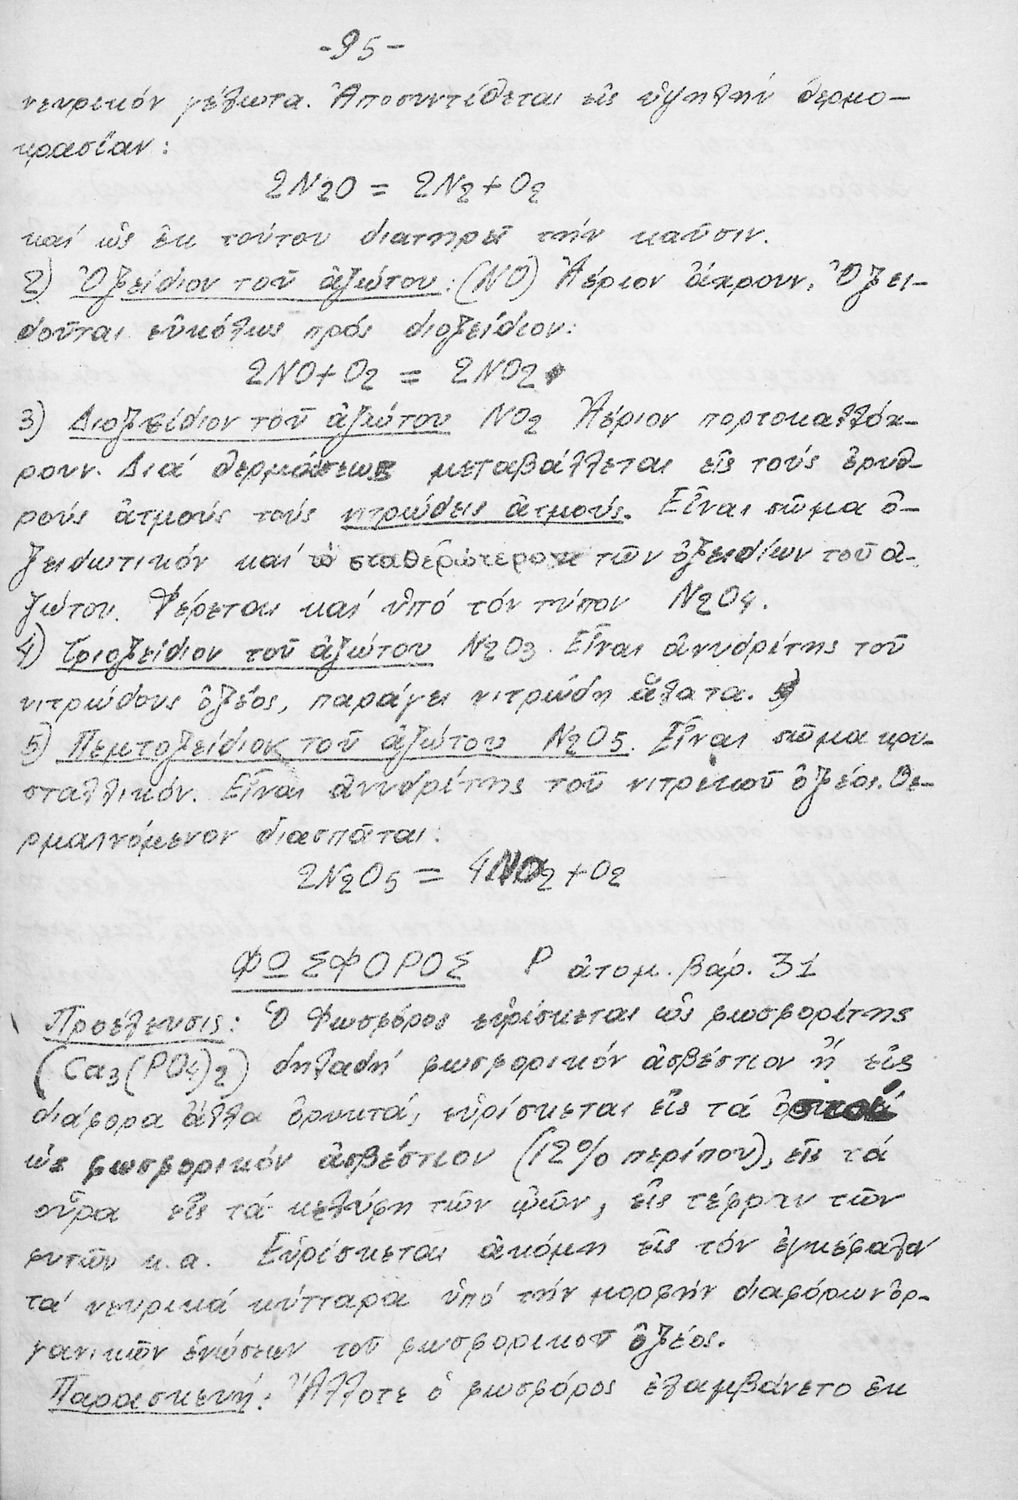 -95-
νευρικόν γέλωτα. Ἀποσυντίθεται εἰς ὑψηλήν θερμο-
κρασίαν:
2N2O = 2N2 + O2
καί ὡς ἐκ τούτου διατηρεῖ τήν καῦσιν.
2) Ὀξείδιον τοῦ ἀζώτου: (NO) Ἀέριον ἄχρουν. Ὀξει-
δοῦται εὐκόλως πρός διοξείδιον:
2NO + O2 = 2NO2.
3) Διοξείδιον τοῦ ἀζώτου NO2 Ἀέριον πορτοκαλλόχ-
ρουν. Διά θερμάσεως μεταβάλλεται εἰς τούς ἐρυθ-
ρούς ἀτμούς τούς νιτρώδεις ἀτμούς. Εἶναι σῶμα ὀ-
ξειδωτικόν καί τό σταθερώτερον τῶν ὀξειδίων τοῦ ἀ-
ζώτου. Φέρεται καί ὑπό τόν τύπον N2O4.
4) Τριοξείδιον τοῦ ἀζώτου N2O3. Εἶναι ἀνυδρίτης τοῦ
νιτρώδους ὀξέος, παράγει νιτρώδη ἅλατα.
5) Πεμτοξείδιον τοῦ ἀζώτου N2O5. Εἶναι σῶμα κρυ-
σταλλικόν. Εἶναι ἀνυδρίτης τοῦ νιτρικοῦ ὀξέος. Θε-
ρμαινόμενον διασπᾶται:
2N2O5 = 4NO2 + O2
ΦΩΣΦΟΡΟΣ P ἀτομ. βάρ. 31
Προέλευσις: Ὁ Φωσφόρος εὑρίσκεται ὡς φωσφορίτης
(Ca3(PO4)2) δηλαδή φωσφορικόν ἀσβέστιον ἤ εἰς
διάφορα ἄλλα ὀρυκτά, εὑρίσκεται εἰς τά ὀστοῖ
ὡς φωσφορικόν ἀσβέστιον (12% περίπου), εἰς τά
οὖρα εἰς τά κελύφη τῶν ὠῶν, εἰς τέφραν τῶν
φυτῶν κ.α. Εὑρίσκεται ἀκόμη εἰς τόν ἐγκέφαλον
τά νευρικά κύτταρα ὑπό τήν μορφήν διαφόρων ὀρ-
γανικῶν ἑνώσεων τοῦ φωσφορικοῦ ὀξέος.
Παρασκευή: Ἄλλοτε ὁ φωσφόρος ἐλαμβάνετο ἐκ